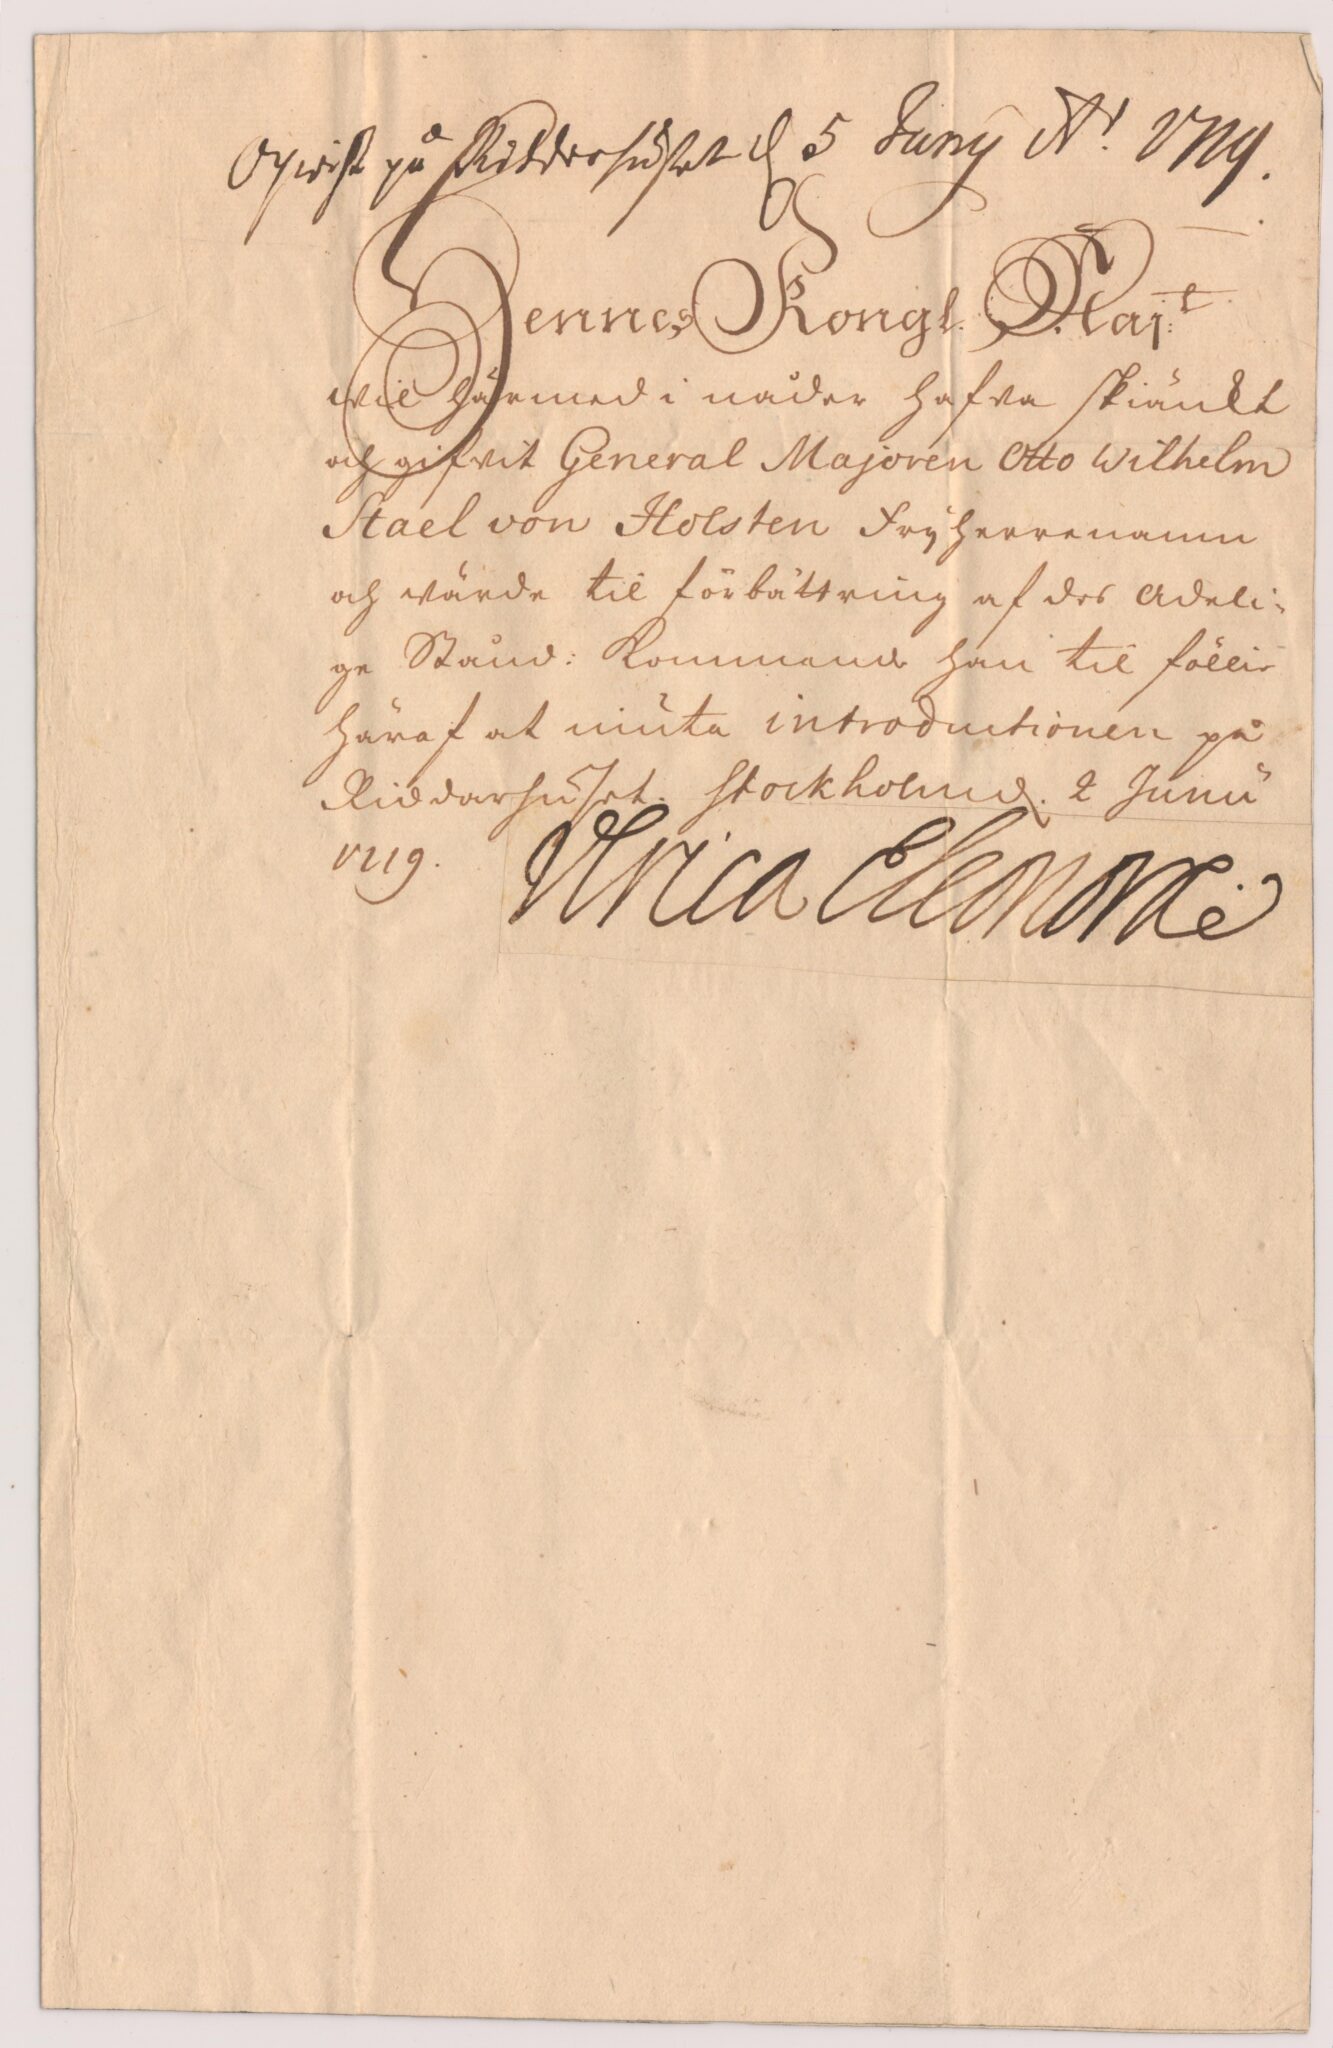 på Ridderhuset d 5 Juny A:o 1719.
Hennes Kongl. Maj:t
wil härmed i nåder hafva skiänckt
och gifvit General Majoren Otto Wilhelm
Stael von Holsten Fryherrenamn
och wärde til förbättring af des adeli-
ge Stånd: Kommande han til föllie
häraf at niuta introductionen på
Riddarhuset. Stockholm d. 2 Junii
1719. Ulrica Eleonora